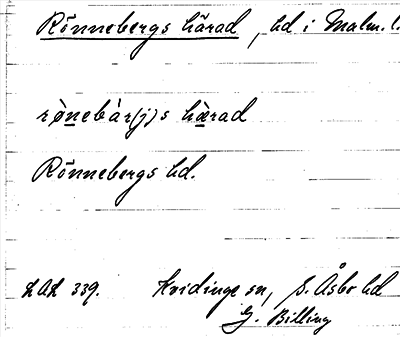 Rönnebergs härad, hd i Malm. l.
rönebär(j)s härad
Rönnebergs hd.
LAL 339. Kvidinge sn, S. Åsbo hd
G. Billing